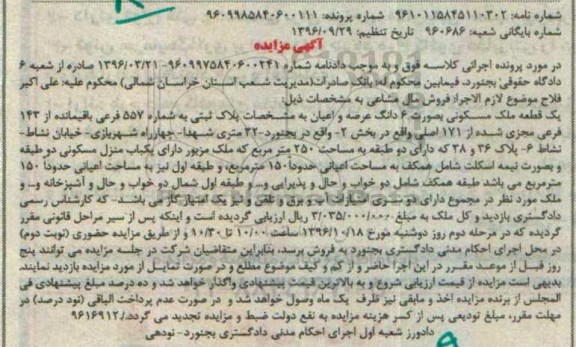 شماره نامه: ۹۶۱۰۱۱۵۸۴۵۱۱۰۳۰۲ شماره پرونده: ۹۶۰۹۹۸۵۸۴۰۶۰۰۱۱۱
شماره بایگانی شعبه: ۹۶۰۶۸۶ تاریخ تنظیم: ۱۳۹۶/۰۹/۲۹
آگهی مزایده
در مورد پرونده اجرائی کلاسه فوق و به موجب دادنامه شماره ۹۶۰۹۹۷۵۸۴۰۶۰۰۲۴۱-۱۳۹۶/۰۳/۲۱ صادره از شعبه ۶
دادگاه حقوقی بجنورد، فیمابین محکوم له: بانک صادرات(مدیریت شعب استان خراسان شمالی) محکوم علیه: علی اکبر
فلاح موضوع لازم الاجرا: فروش مال مشاعی به مشخصات ذیل:
یک قطعه ملک مسکونی بصورت ۶ دانگ عرصه و اعیان به مشخصات پلاک ثبتی به شماره ۵۵۷ فرعی باقیمانده از ۱۴۳
فرعی مجزی شده از ۱۷۱ اصلی واقع در بخش ۲- واقع در بجنورد-۳۲ متری شهدا- چهارراه شهربازی- خیابان نشاط-
نشاط ۶- پلاک ۳۶ و ۳۸ که دارای دو طبقه به مساحت ۲۵۰ متر مربع که ملک مزبور دارای یکباب منزل مسکونی دو طبقه
و بصورت نیمه اسکلت شامل همکف به مساحت اعیانی حدوداً ۱۵۰ مترمربع، و طبقه اول نیز به مساحت اعیانی حدوداً ۱۵۰
مترمربع می باشد طبقه همکف شامل دو خواب و حال و پذیرایی و... و طبقه اول شمال دو خواب و حال و آشپزخانه و... و
ملک مورد نظر در مجموع دارای دو سری امتیازات آب و برق و تلفن و نیز یک امتیاز گاز می باشد- که کارشناس رسمی
دادگستری بازدید و کل ملک به مبلغ ۳/۰۳۵/۰۰۰/۰۰۰ ریال ارزیابی گردیده است و اینکه پس از سیر مراحل قانونی مقرر
گردیده که در مرحله دوم روز دوشنبه مورخ ۱۳۹۶/۱۰/۱۸ ساعت ۱۰/۰۰ تا ۱۰/۳۰ و از طریق مزایده حضوری (نوبت دوم)
در محل اجرای احکام مدنی دادگستری بجنورد به فروش برسد، بنابراین متقاضیان شرکت در جلسه مزایده می توانند پنج
روز قبل از موعد مقرر در این اجرا حاضر و از کم و کیف موضوع مطلع و در صورت تمایل از مورد مزایده بازدید نمایند.
بدیهی است مزایده از قیمت ارزیابی شروع و به بالاترین قیمت پیشنهادی واگذار خواهد شد و ده درصد مبلغ پیشنهادی فی
المجلس از برنده مزایده اخذ و مابقی نیز ظرف یک ماه وصول خواهد شد و در صورت عدم پرداخت الباقی (نود درصد) در
مهلت مقرر، مبلغ تودیعی پس از کسر هزینه مزایده به نفع دولت ضبط و مزایده تجدید می گردد./۹۶۱۶۹۱۲
دادورز شعبه اول اجرای احکام مدنی دادگستری بجنورد- نودهی